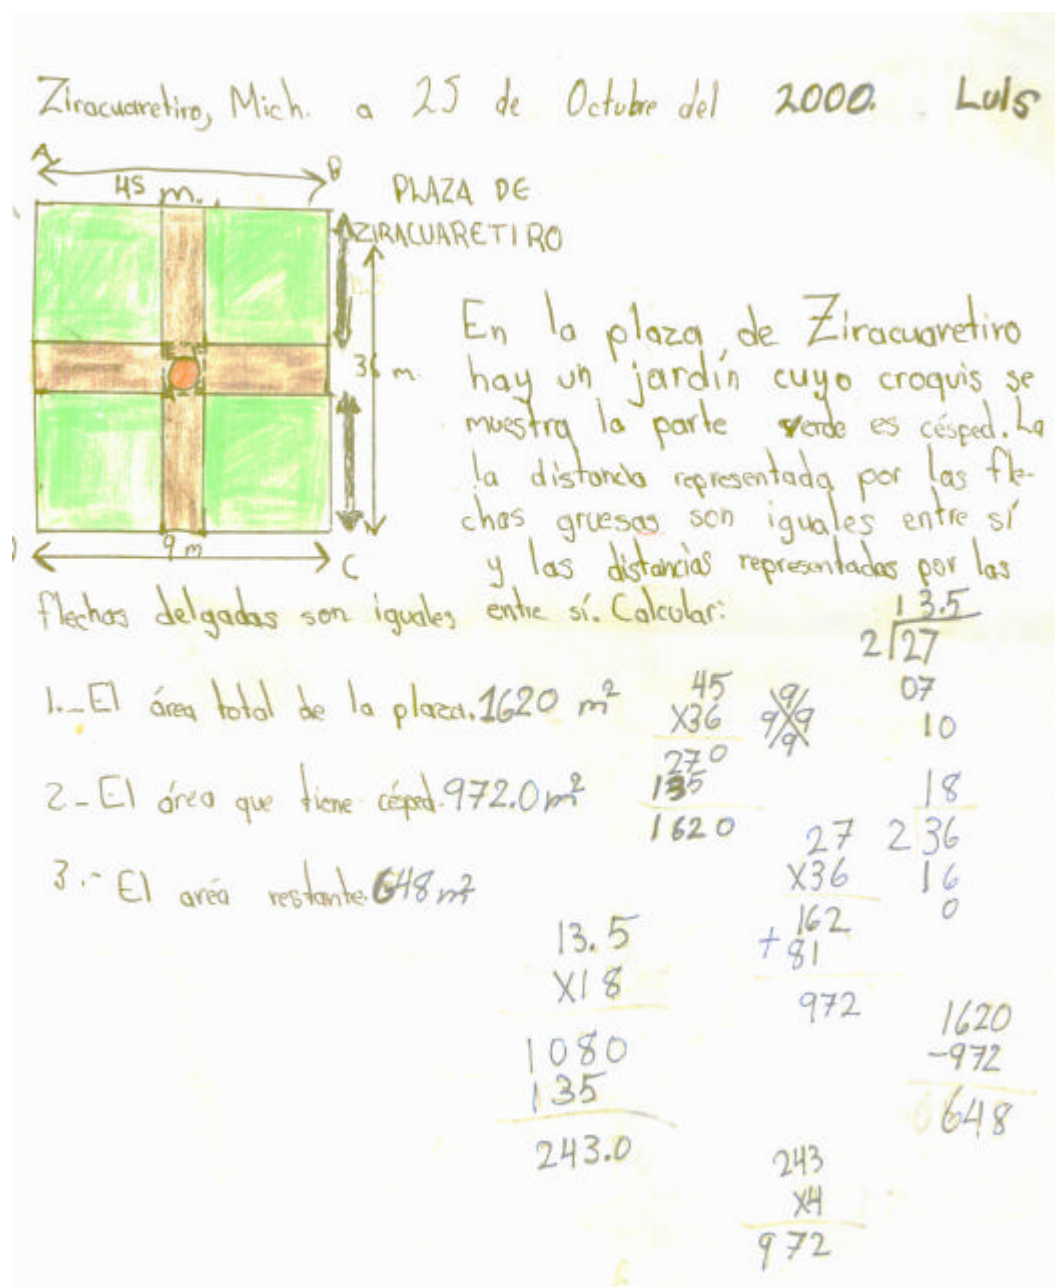 Ziracuaretiro, Mich. a 25 de Octubre del 2000. Luis
A
B
45 m.
PLAZA DE
ZIRACUARETIRO
36 m.
9 m
C
En la plaza de Ziracuaretiro
hay un jardín cuyo croquis se
muestra la parte verde es césped. La
la distancia representada por las fle-
chas gruesas son iguales entre sí
y las distancias representadas por las
flechas delgadas son iguales entre sí. Calcular:
13.5
2 27
07
10
1.- El área total de la plaza. 1620 m²
45
X36
270
135
1620
9
9 9
9
2- El área que tiene césped. 972.0 m²
18
2 36
16
0
27
X36
162
+ 81
972
3.- El aréa restante. 648 m²
13.5
X18
1080
135
243.0
1620
-972
648
243
X4
972